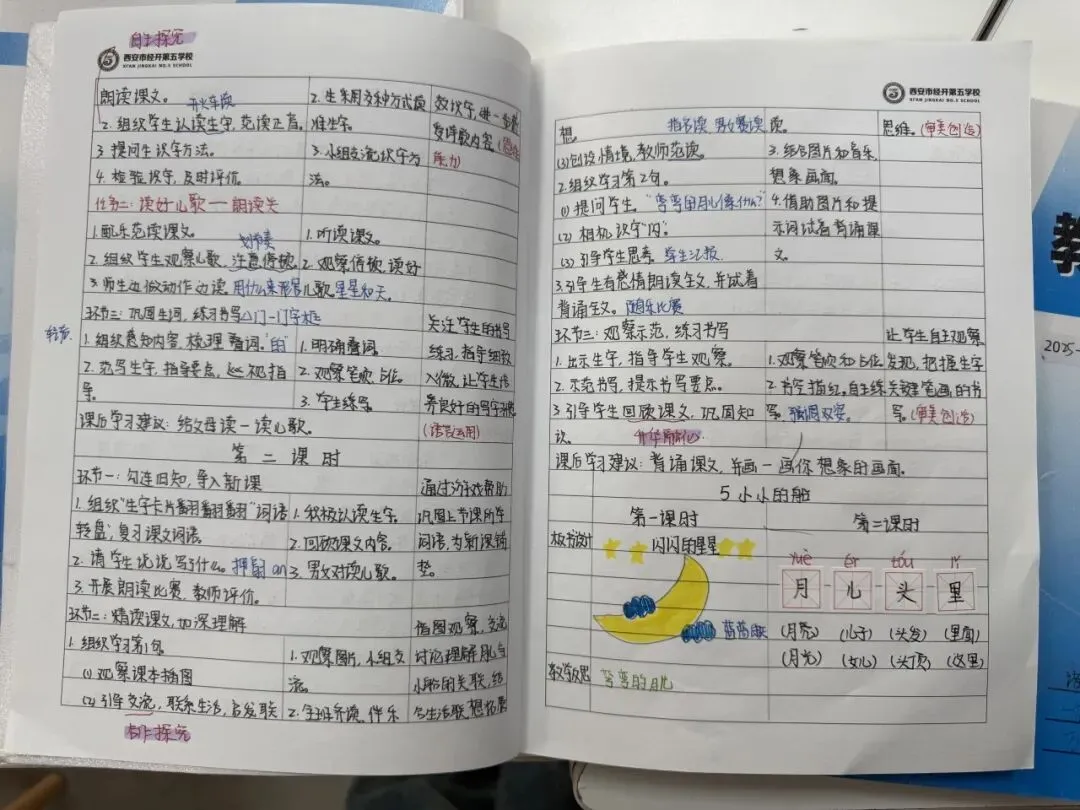 自主探究
西安市经开第五学校
XI'AN JINGKAI NO.5 SCHOOL
朗读课文。 开火车读 2. 生采用多种方式读
2. 组织学生认读生字,范读正音。 准生字。
3. 提问生识字方法。 3. 小组交流识字方 能力)
4. 检验识字,及时评价。 法。
任务二:读好儿歌——朗读关
1. 配乐范读课文。 划节奏 1. 听读课文。
2. 组织学生观察儿歌,注意停顿。 2. 观察停顿,读好
3. 师生边做动作边读。用什么来形容 儿歌。星星和天。
环节三:巩固生词,练习书写 门—门字框 关注学生的书写
轻声
1. 组织感知内容,梳理叠词。"的" 1. 明确叠词。 练习,指导细致
2. 范写生字,指导要点,巡视指 2. 观察笔顺、占位。 入微,让学生培
导。 3. 学生练写。 养良好的写字习惯。
课后学习建议:给父母读一读儿歌。 (语言运用)
第二课时
环节一:勾连旧知,导入新课 通过游戏帮助
1. 组织"生字卡片翻翻翻""词语 1. 积极认读生字。 巩固上节课所学
转盘",复习课文词语。 2. 回顾课文内容。 词语,为新课铺
2. 请学生说说写了什么。押韵 an 3. 男女对读儿歌。 垫。
3. 开展朗读比赛,教师评价。
环节二:精读课文,加深理解 借图观察,交流
1. 组织学习第1句。 1. 观察图片,小组交 讨论理解月儿与
(1) 观察课本插图 流。 小船的关联,结
(2) 引导交流,联系生活,启发联 2. 全班齐读,伴乐 合生活联想拓展
合作探究
西安市经开第五学校
XI'AN JINGKAI NO.5 SCHOOL
想。 指名读 男女赛读 读。 思维。(审美创造)
(3) 创设情境,教师范读。 3. 结合图片和音乐,
2. 组织学习第2句。 想象画面。
(1) 提问学生。"弯弯的月儿像什么?" 4. 借助图片和提
(2) 相机识字"闪"。 示词试着背诵课
(3) 引导学生思考 学生汇报 文。
3. 引导学生有感情朗读全文,并试着
背诵全文。 随乐比赛
环节三:观察示范,练习书写 让学生自主观察
1. 出示生字,指导学生观察。 1. 观察笔顺和占位。 发现,把握生字
2. 示范书写,提示书写要点。 2. 书空、描红、自主练 关键笔画的书
3. 引导学生回顾课文,巩固知 写。强调双姿。 写。(审美创造)
识。 升华融心
课后学习建议:背诵课文,并画一画你想象的画面。
5 小小的船
第一课时 第二课时
板书设计 闪闪的星星 yuè ér tóu lǐ
月 儿 头 里
蓝蓝的天 (月亮) (儿子) (头发) (里面)
(月光) (女儿) (头顶) (这里)
教学反思 弯弯的月儿
教
2025-